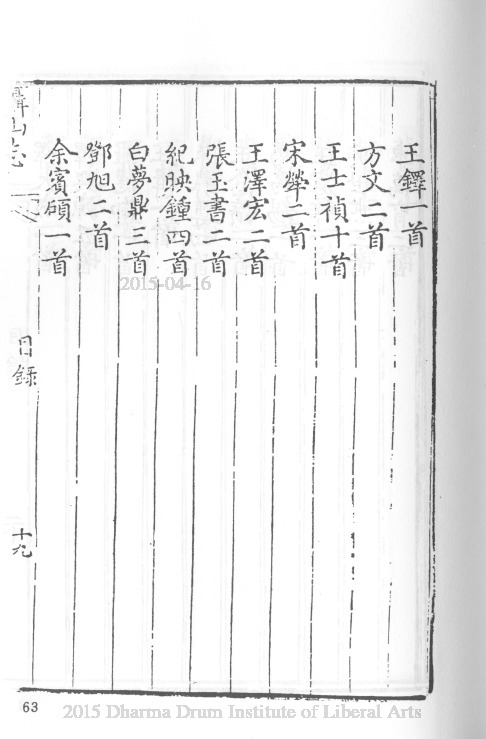 王鐸一首
方文二首
王士禎十首
宋犖二首
王澤宏二首
張玉書二首
紀映鍾四首
白夢鼎三首
鄧旭二首
余賓碩一首
山志
目錄
十九
63
2015-04-16
2015 Dharma Drum Institute of Liberal Arts